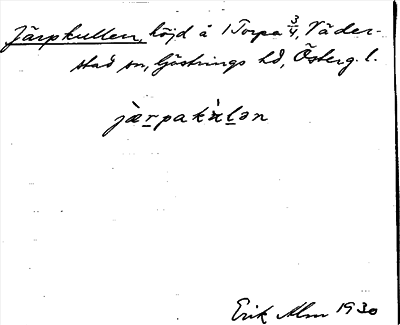 Järpkullen, höjd å 1 Torpa 3/4, Väder-
stad sn, Göstrings hd, Österg. l.
jæ̀rpakʌ̀lən
Erik Alm 1930